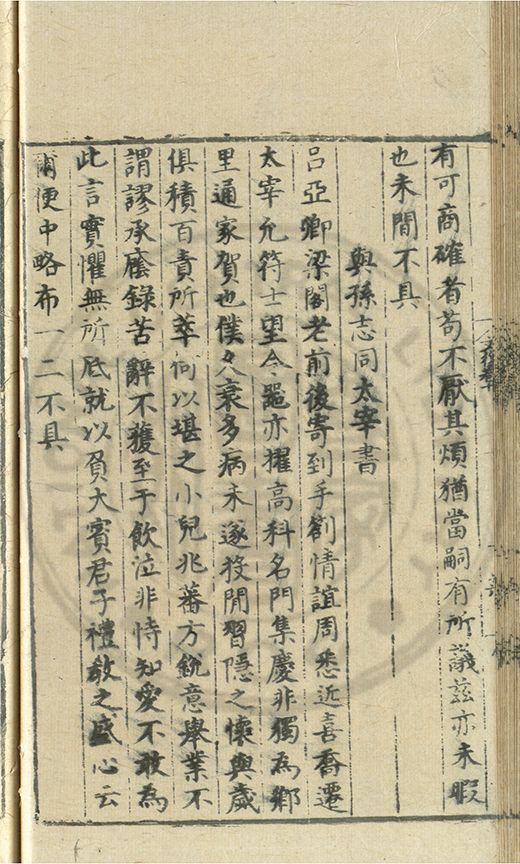 有可商確者苟不厭其煩猶當嗣有所議茲亦未暇
也未間不具
與孫志同太宰書
呂亞卿梁閣老前後寄到手劄情誼周悉近喜喬遷
太宰允符士望令器亦擢高科名門集慶非獨為鄉
里通家賀也僕久衰多病未遂投閒習隱之懷與歲
俱積百責所萃何以堪之小兒兆蕃方銳意舉業不
謂謬承廕錄苦辭不獲至于飲泣非恃知愛不敢為
此言實懼無所底就以負大賓君子禮教之盛心云
爾便中略布一二不具